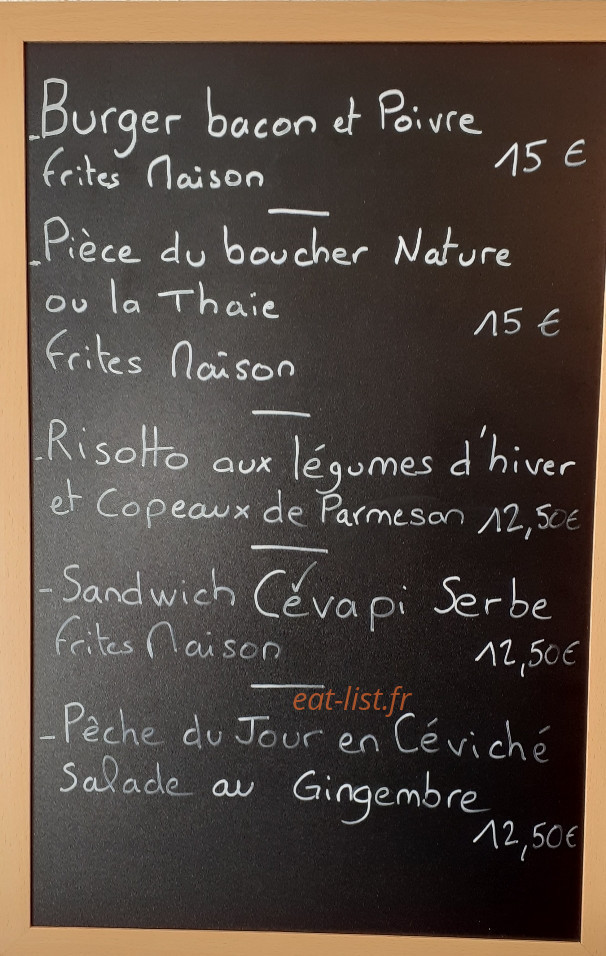 - Burger bacon et Poivre
frites Maison
15 €
- Pièce du boucher Nature
ou la Thaie
15 €
frites Maison
- Risotto aux légumes d'hiver
et Copeaux de Parmesan 12,50€
- Sandwich Cévapi Serbe
frites Maison
12,50€
eat-list.fr
- Pêche du Jour en Céviché
Salade au Gingembre
12,50€